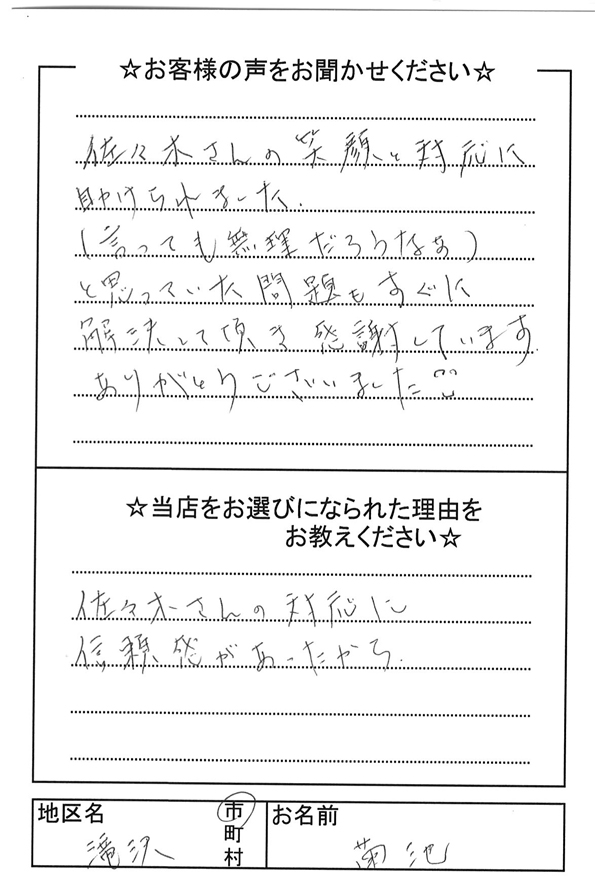 ☆お客様の声をお聞かせください☆
佐々木さんの笑顔と対応に
助けられました.
(言っても無理だろうなぁ)
と思っていた問題もすぐに
解決して頂き感謝しています.
ありがとうございました
☆当店をお選びになられた理由を
お教えください☆
佐々木さんの対応に
信頼感があったから.
地区名
滝沢
市
町
村
お名前
菊池